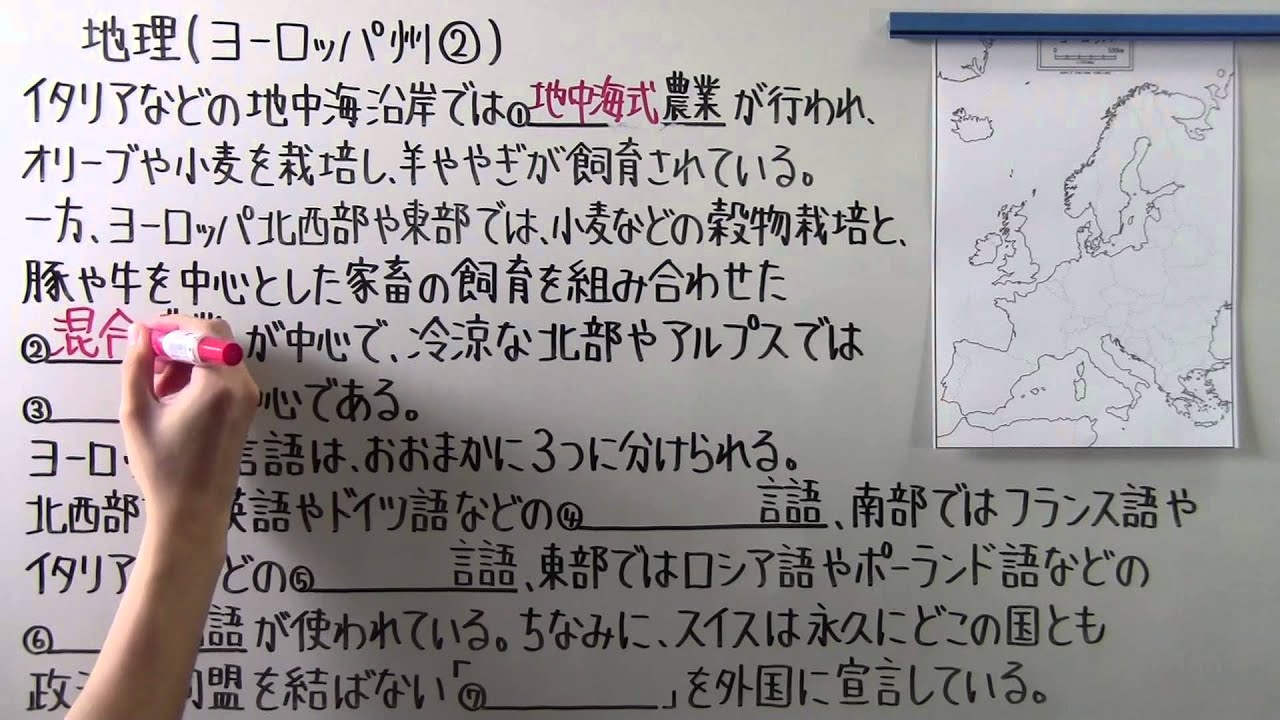 地理(ヨーロッパ州②)
イタリアなどの地中海沿岸では①地中海式農業が行われ、
オリーブや小麦を栽培し、羊ややぎが飼育されている。
一方、ヨーロッパ北西部や東部では、小麦などの穀物栽培と、
豚や牛を中心とした家畜の飼育を組み合わせた
②混合 が中心で、冷涼な北部やアルプスでは
③ 心である。
ヨーロッ 言語は、おおまかに3つに分けられる。
北西部 英語やドイツ語などの④ 言語、南部ではフランス語や
イタリア どの⑤ 言語、東部ではロシア語やポーランド語などの
⑥ 語が使われている。ちなみに、スイスは永久にどこの国とも
政 同盟を結ばない「⑦ 」を外国に宣言している。